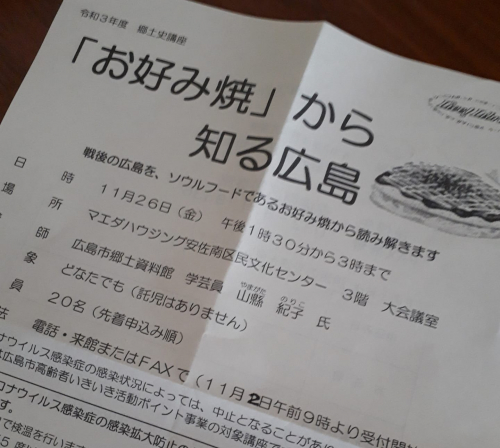 令和3年度 郷土史講座
「お好み焼」から
知る広島
戦後の広島を、ソウルフードであるお好み焼から読み解きます
日 時 11月26日(金) 午後1時30分から3時まで
場 所 マエダハウジング安佐南区民文化センター 3階 大会議室
師 広島市郷土資料館 学芸員 山縣 紀子 氏
やまがた のりこ
象 どなたでも(託児はありません)
員 20名(先着申込み順)
法 電話・来館またはFAXで(11月2日午前9時より受付開始
ナウイルス感染症の感染状況によっては、中止となることがあり
広島市高齢者いきいき活動ポイント事業の対象講座で
ロナウイルス感染症の感染拡大防止の
す。
で検温を行います